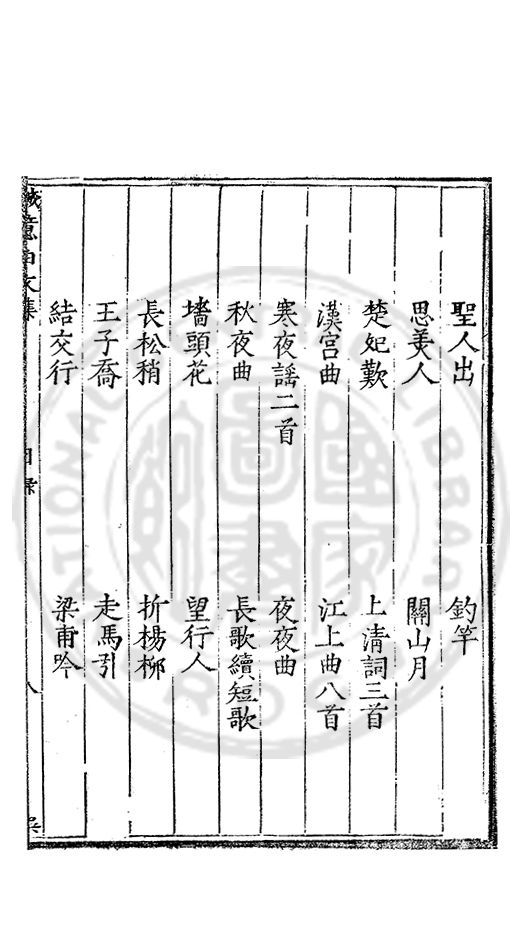 聖人出 釣竿
思美人 關山月
楚妃歎 上清詞三首
漢宮曲 江上曲八首
寒夜謠二首 夜夜曲
秋夜曲 長歌續短歌
墻頭花 望行人
長松稍 折楊柳
王子喬 走馬引
結交行 梁甫吟
誠意伯文集 目録 八